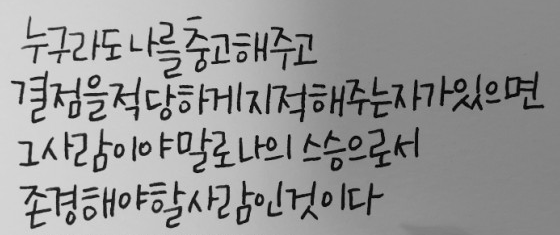 누구라도 나를 충고해주고
결점을 적당하게 지적해주는 자가 있으면
그 사람이야말로 나의 스승으로서
존경해야 할 사람인 것이다